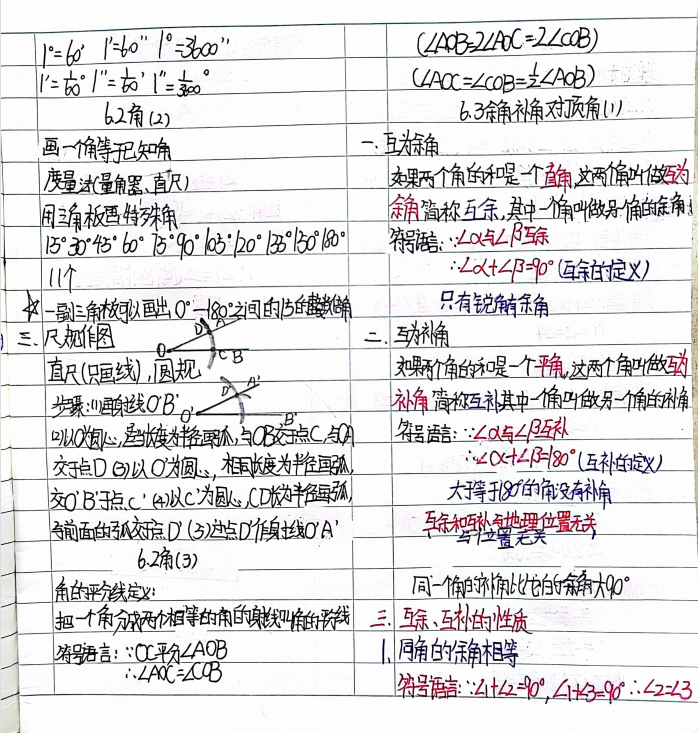 1°=60′ 1′=60″ 1°=3600″
1′=1/60° 1″=1/60′ 1″=1/3600°
6.2角(2)
画一个角等于已知角
度量法(量角器、直尺)
用三角板画特殊角
15° 30° 45° 60° 75° 90° 105° 120° 135° 150° 180°
11个
☆一副三角板可以画出0°—180°之间的15的整数倍角
三、尺规作图
直尺(只画线),圆规
步骤:(1)画射线O′B′
(2)以O为圆心,适当长度为半径画弧,与OB交于点C,与OA
交于点D (3)以O′为圆心,相同长度为半径画弧,
交O′B′于点C′ (4)以C′为圆心,CD长为半径画弧,
与前面的弧交于点D′ (5)过点D′作射线O′A′
O D A C B
O′ D′ A′ B′
6.2角(3)
角的平分线定义:
把一个角分成两个相等的角的射线叫角的平分线
符号语言:∵OC平分∠AOB
∴∠AOC=∠COB
(∠AOB=2∠AOC=2∠COB)
(∠AOC=∠COB=1/2∠AOB)
6.3余角补角对顶角(1)
一.互为余角
如果两个角的和是一个直角,这两个角叫做互为
余角 简称互余,其中一个角叫做另一角的余角
符号语言:∵∠α与∠β互余
∴∠α+∠β=90°(互余的定义)
只有锐角有余角
二.互为补角
如果两个角的和是一个平角,这两个角叫做互为
补角 简称互补,其中一个角叫做另一个角的补角
符号语言:∵∠α与∠β互补
∴∠α+∠β=180°(互补的定义)
大于等于180°的角没有补角
互余和互补与地理位置无关
与位置无关
同一个角的补角比它的余角大90°
三.互余、互补的性质
1.同角的余角相等
符号语言:∵∠1+∠2=90°,∠1+∠3=90°∴∠2=∠3